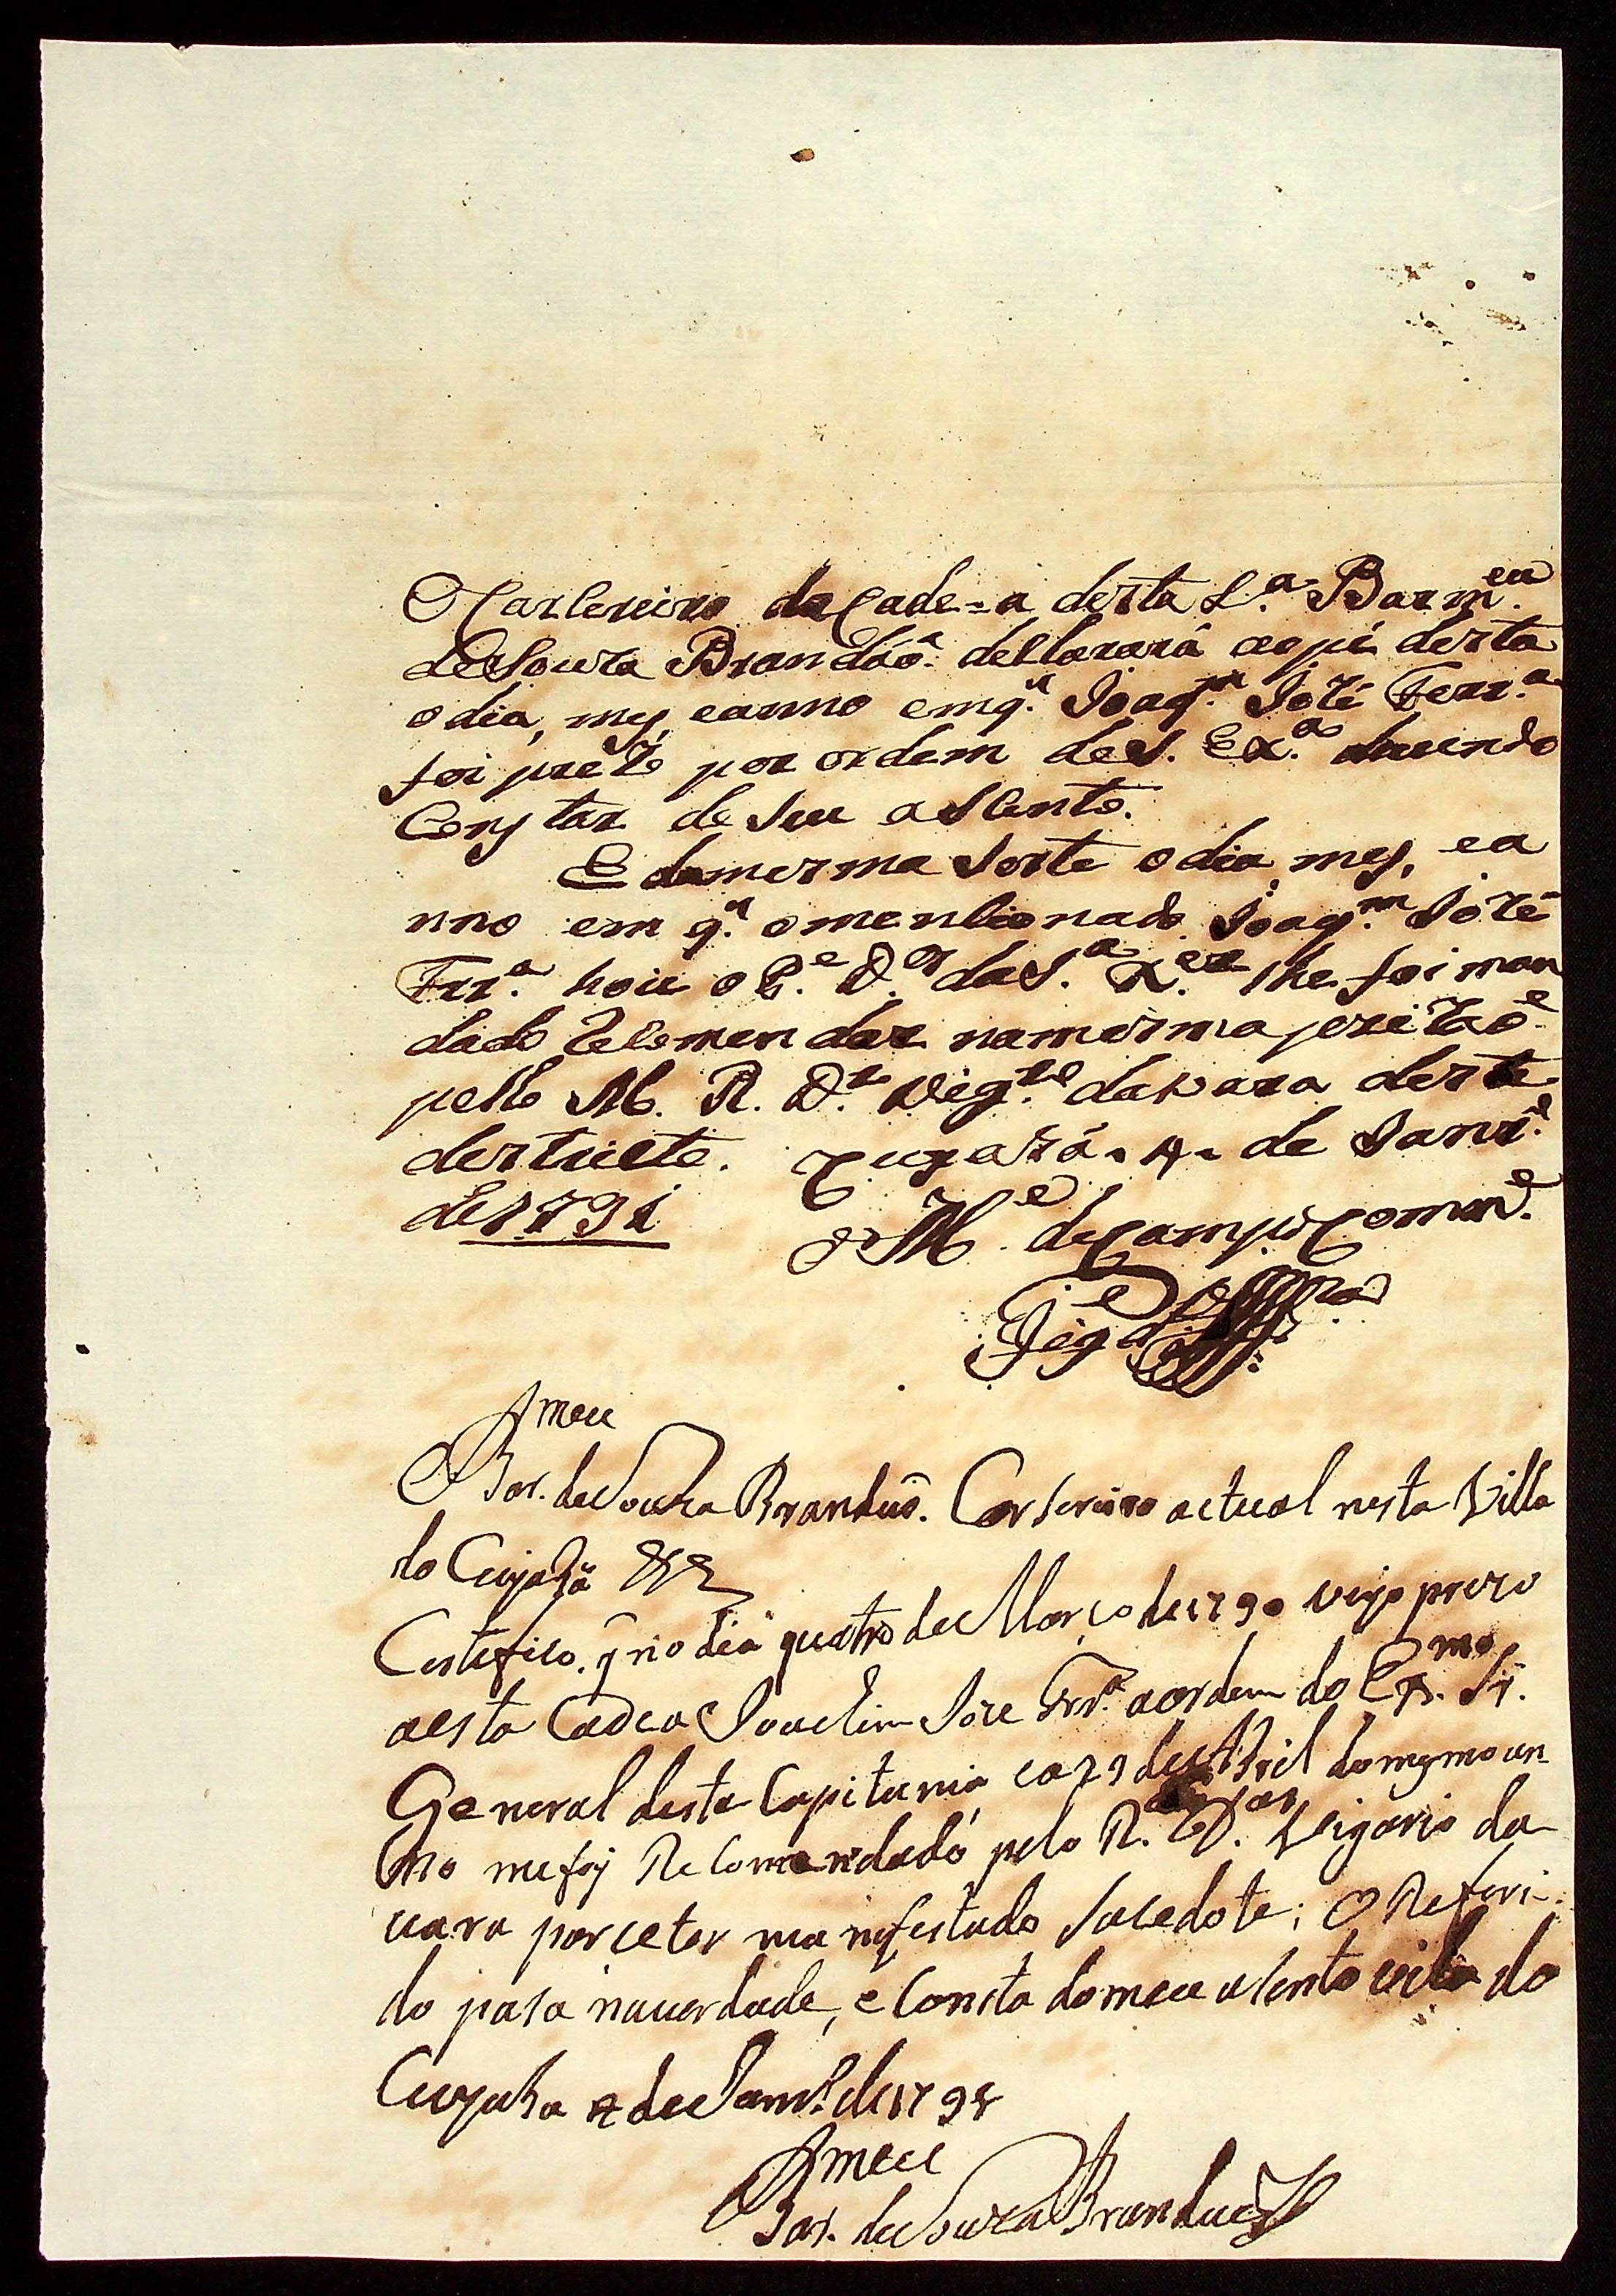 O Carcereiro da Cade=a desta V.ª Barm.eu
de Souza Brandáõ. declarará aqui desta
o dia, mes, eanno emq.' Joaq.m Jozé Ferr.ª
foi prezo por ordem de S. Ex.ª devendo
Constar de seu aSento.
E damesma Sorte o dia, mes, ea
nno em q.' omencionado Joaq.m Jozé
Frr.ª
lhe foi man
dado Recomendar namesma prizaõ
pello M. R. D.r Vig.ro davara deste
destricto. Cuyabá. 4. de Janr.º
de 1791
O M.e de Campo Comand.e
Bar.meu de Souza Brandaõ. Carsereiro actual nesta Villa
do Cuyabá &ª
Certefico. q̃ no dia quatro de Março de 1790 veyo prezo
aesta Cadea Joachim Joze Frr.ª aordem do Ex.mo Sr.
General desta Capitania, ea29 de Abril domesmo an
no mefoy Recomendado pelo R. D.or Vigario da
vara por ceter manifestado Sacedote; O Referi-
do pasa naverdade, e Consta domeu asento vila do
Cuyaba 4 de Janr.º de 1791
Bar.meu de Souza Brandaõ